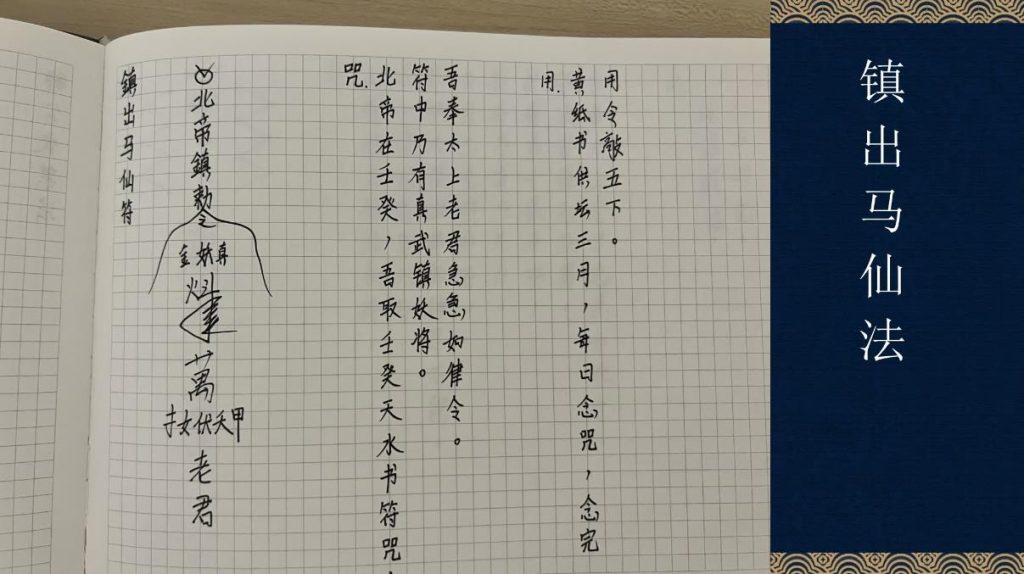 镇出马仙法
鎮出马仙符
北帝鎮敕令
萬
老君
咒.
北帝在壬癸，吾取壬癸天水书符咒，
符中乃有真武镇妖将。
吾奉太上老君急急如律令。
用.
黄纸书供坛三月，每日念咒，念完
用令敲五下。